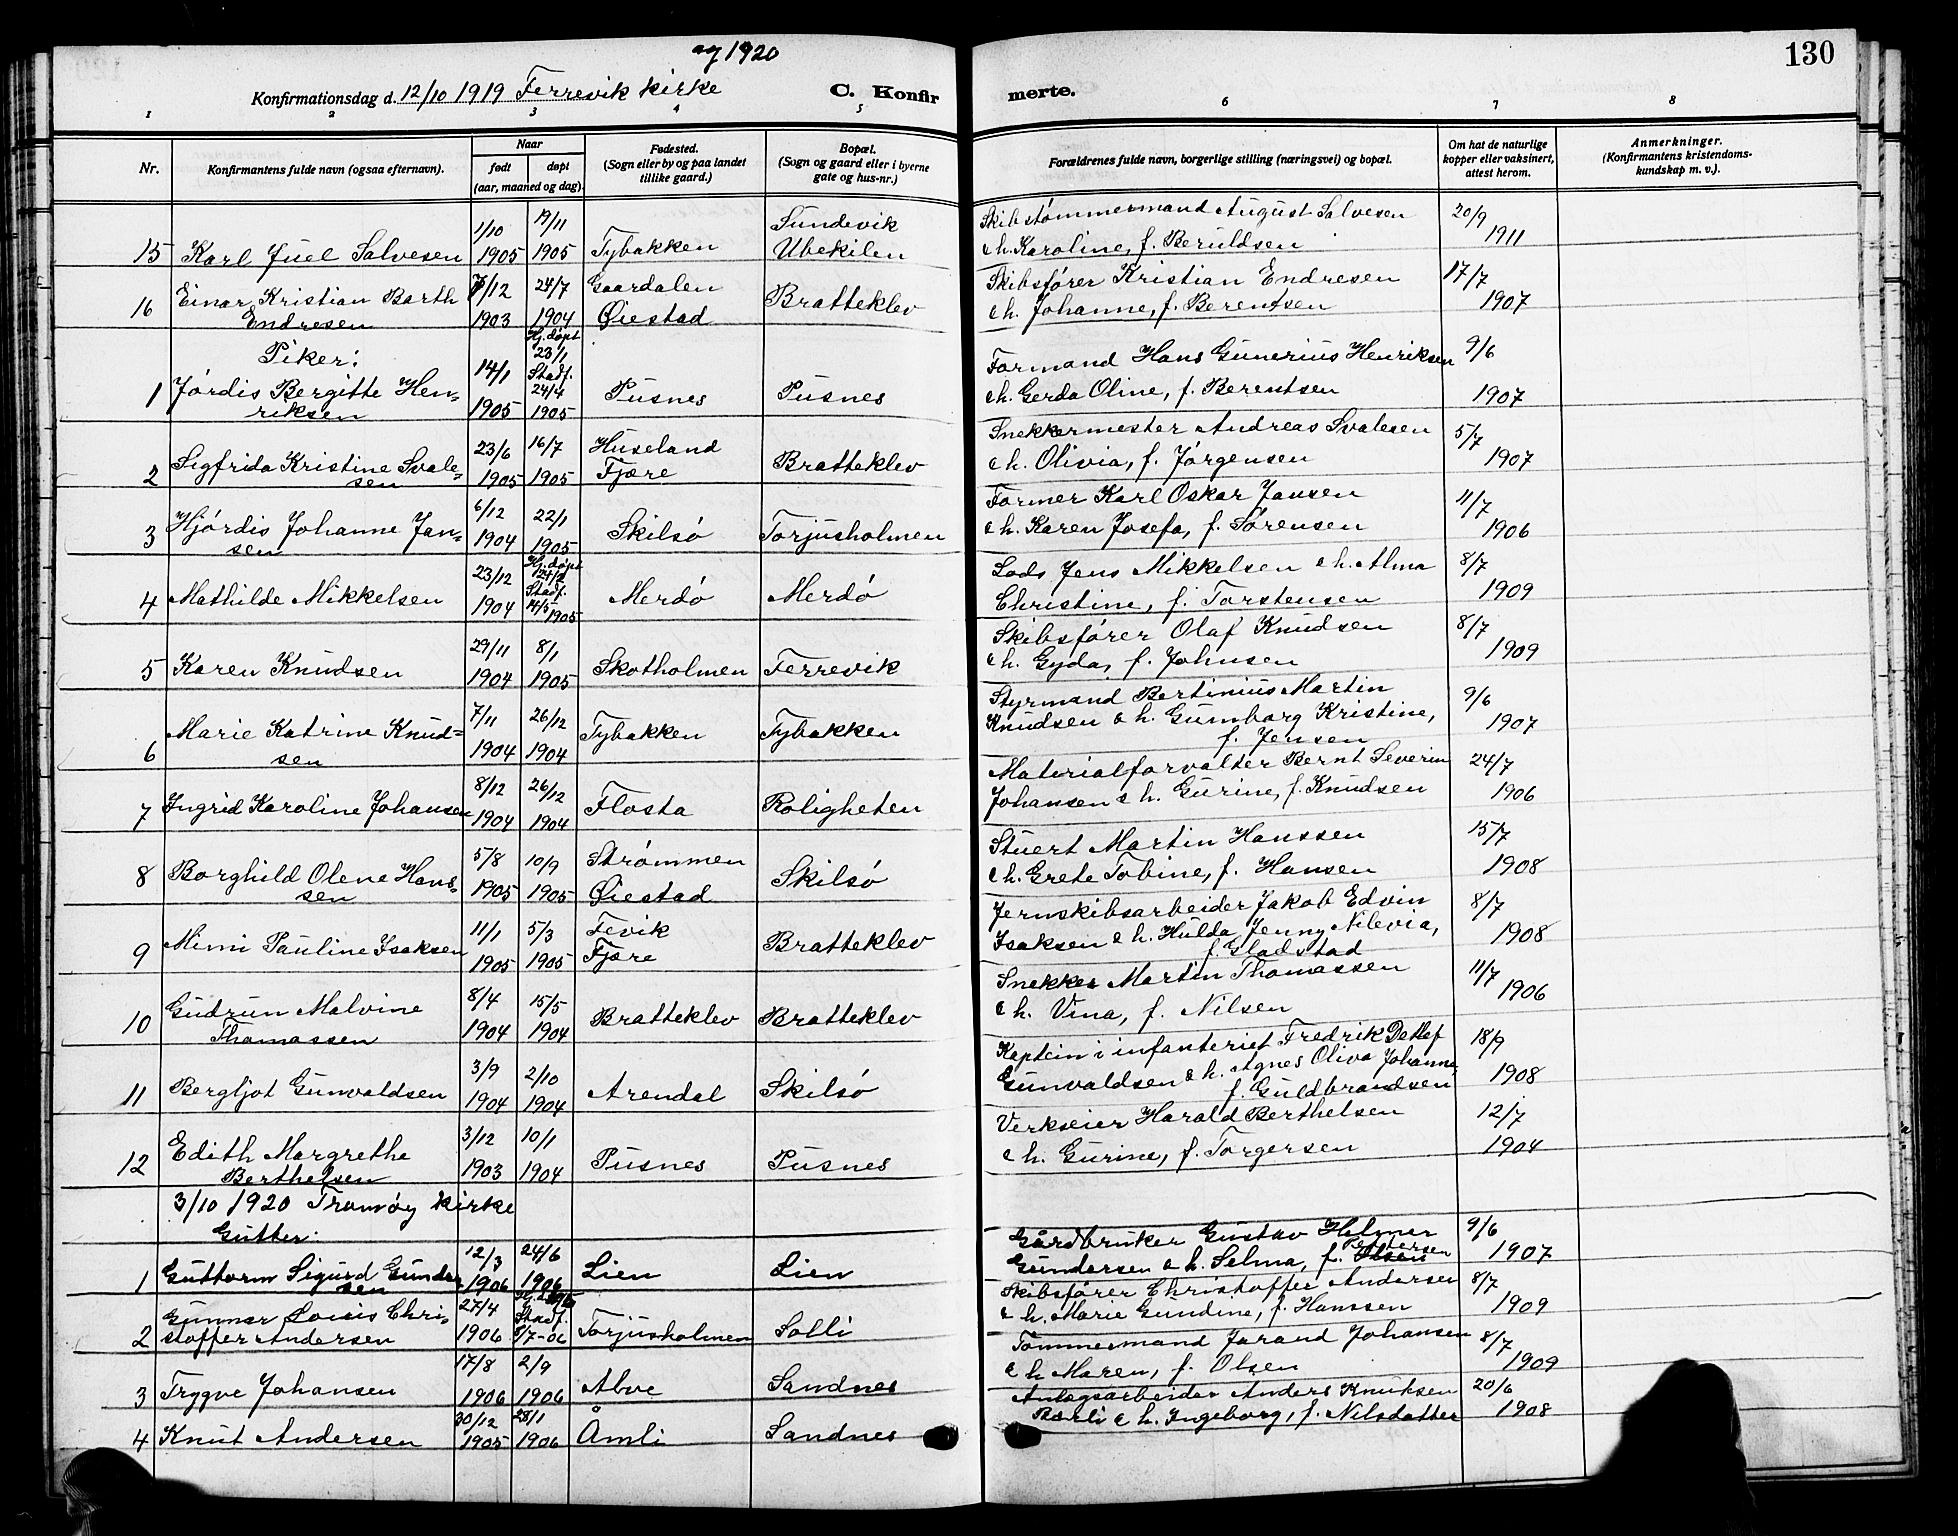 og 1920
130
Konfirmationsdag d. 12/10 1919 Færevik kirke
C. Konfirmerte.
1 2 3 4 5 6 7 8
Nr.
Konfirmantens fulde navn (ogsaa efternavn).
Naar
født
døpt
(aar, maaned og dag).
Fødested.
(Sogn eller by og paa landet
tillike gaard.)
Bopæl.
(Sogn og gaard eller i byerne
gate og hus-nr.)
Forældrenes fulde navn, borgerlige stilling (næringsvei) og bopæl.
Om hat de naturlige
kopper eller vaksinert,
attest herom.
Anmerkninger.
(Konfirmantens kristendoms-
kundskap m. v.).
1/10 19/11 Sundevik Skibstømmermand August Salvesen 20/9
15 Karl Juel Salvesen 1905 1905 Tybakken Ubekilen & h. Karoline, f. Beruldsen 1911
Einar Kristian Barth 7/12 24/7 Gaardalen Skibsfører Kristian Endresen 17/7
16 Endresen 1903 1904 Øiestad Bratteklev & h. Johanne, f. Berentsen 1907
Piker:
14/1 Hj. døpt 23/1 Formand Hans Gunerius Henriksen 9/6
1 Jørdis Bergitte Hen= Stadf. 24/4 Pusnes Pusnes & h. Gerda Oline, f. Berentsen 1907
riksen 1905 1905
23/6 16/7 Huseland Snekkermester Andreas Svalesen 5/7
2 Sigfrida Kristine Svale= 1905 1905 Fjære Bratteklev & h. Olivia, f. Jørgensen 1907
sen
6/12 22/1 Former Karl Oskar Jansen 11/7
3 Hjørdis Johanne Jan= 1904 1905 Skilsø Torjusholmen & h. Karen Josefa, f. Sørensen 1906
sen
23/12 Hj. døpt 24/2 Lods Jens Mikkelsen & h. Alma 8/7
4 Mathilde Mikkelsen 1904 Stadf. 14/5 1905 Merdø Merdø Christine, f. Torstensen 1909
29/11 8/1 Skibsfører Olaf Knudsen 8/7
5 Karen Knudsen 1904 1905 Skotholmen Færevik & h. Gyda, f. Johnsen 1909
7/11 26/12 Styrmand Bertinius Martin 9/6
6 Marie Katrine Knud= 1904 1904 Tybakken Tybakken Knudsen & h. Gumborg Kristine, 1907
sen f. Jensen
8/12 26/12 Materialforvalter Bernt Severin 24/7
7 Ingrid Karoline Johansen 1904 1904 Flosta Roligheten Johansen & h. Gurine, f. Knudsen 1906
5/8 10/9 Strømmen Stuert Martin Hanssen 15/7
8 Borghild Olene Hans= 1905 1905 Øiestad Skilsø & h. Grete Tobine, f. Hansen 1908
sen
11/1 5/3 Fevik Jernskibsarbeider Jakob Edvin 8/7
9 Mimi Pauline Isaksen 1905 1905 Fjære Bratteklev Isaksen & h. Hulda Jenny Nilevia, 1908
f. Gladstad
8/4 15/5 Snekker Martin Thomassen 11/7
10 Gudrun Malvine 1904 1904 Bratteklev Bratteklev & h. Vina, f. Nilsen 1906
Thomassen
3/9 2/10 Kaptein i infanteriet Fredrik Detlef 18/9
11 Bergljot Gunvaldsen 1904 1904 Arendal Skilsø Gunvaldsen & h. Agnes Oliva Johanne 1908
f. Guldbrandsen
3/12 10/1 Verkseier Harald Berthelsen 12/7
12 Edith Margrethe 1903 1904 Pusnes Pusnes & h. Gurine, f. Torgersen 1904
Berthelsen
3/10 1920 Tromøy kirke
Gutter:
12/3 24/6 Gårdbruker Gustav Helmer 9/6
1 Guttorm Sigurd Gunder 1906 1906 Lien Lien Gundersen & h. Selma, f. Pedersen 1907
sen
Gunnar Louis Chri= 27/4 Stadf. Skibsfører Christoffer Andersen 8/7
2 stoffer Andersen 1906 8/7-06 Torjusholmen Solli & h. Marie Gundine, f. Hanssen 1909
17/8 2/9 Tømmermand Jørand Johansen 8/7
3 Trygve Johansen 1906 1906 Alve Sandnes & h. Maren, f. Olsen 1909
30/12 28/1 Anlægsarbeider Anders Knutsen 20/6
4 Knut Andersen 1905 1906 Åmli Sandnes & h. Ingeborg, f. Nilsdatter 1908